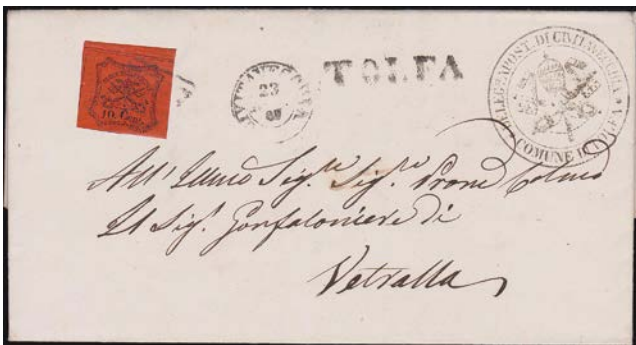 10 Cent
CIVITAVECCHIA
23
TOLFA
DELEGAZ. APOST. DI CIVITAVECCHIA
COMUNE DI TOLFA
All' Illmo Sig.re Sig.re Prone Colmo
Il Sig.r Gonfaloniere di
Vetralla